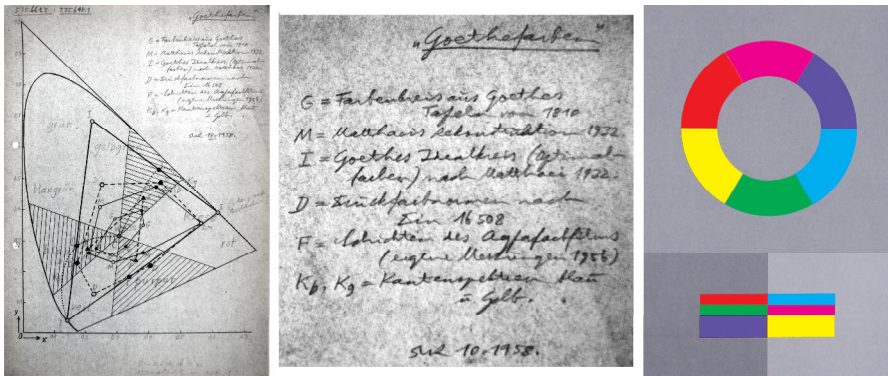 575.664.3 : 535.641.1
„Goethefarben"
G = Farbenkreis aus Goethes
Tafeln von 1810
M = Matthaeis Rekonstruktion 1932.
I = Goethes Idealkreis (Optimal-
farben) nach Matthaei 1932.
D = Druckfarbnormen nach
Din 16508
F = Schichten des Agfafarbfilms
(eigene Messungen 1956)
Kb, Kg = Kantenspektren blau
u Gelb.
10.1958.
grün
gelbgrün
I
blaugrün
rot
purpur
y
x
„Goethefarben"
G = Farbenkreis aus Goethes
Tafeln von 1810
M = Matthaeis Rekonstruktion 1932.
I = Goethes Idealkreis (Optimal-
farben) nach Matthaei 1932.
D = Druckfarbnormen nach
Din 16508
F = Schichten des Agfafarbfilms
(eigene Messungen 1956)
Kb, Kg = Kantenspektren blau
u Gelb.
10.1958.